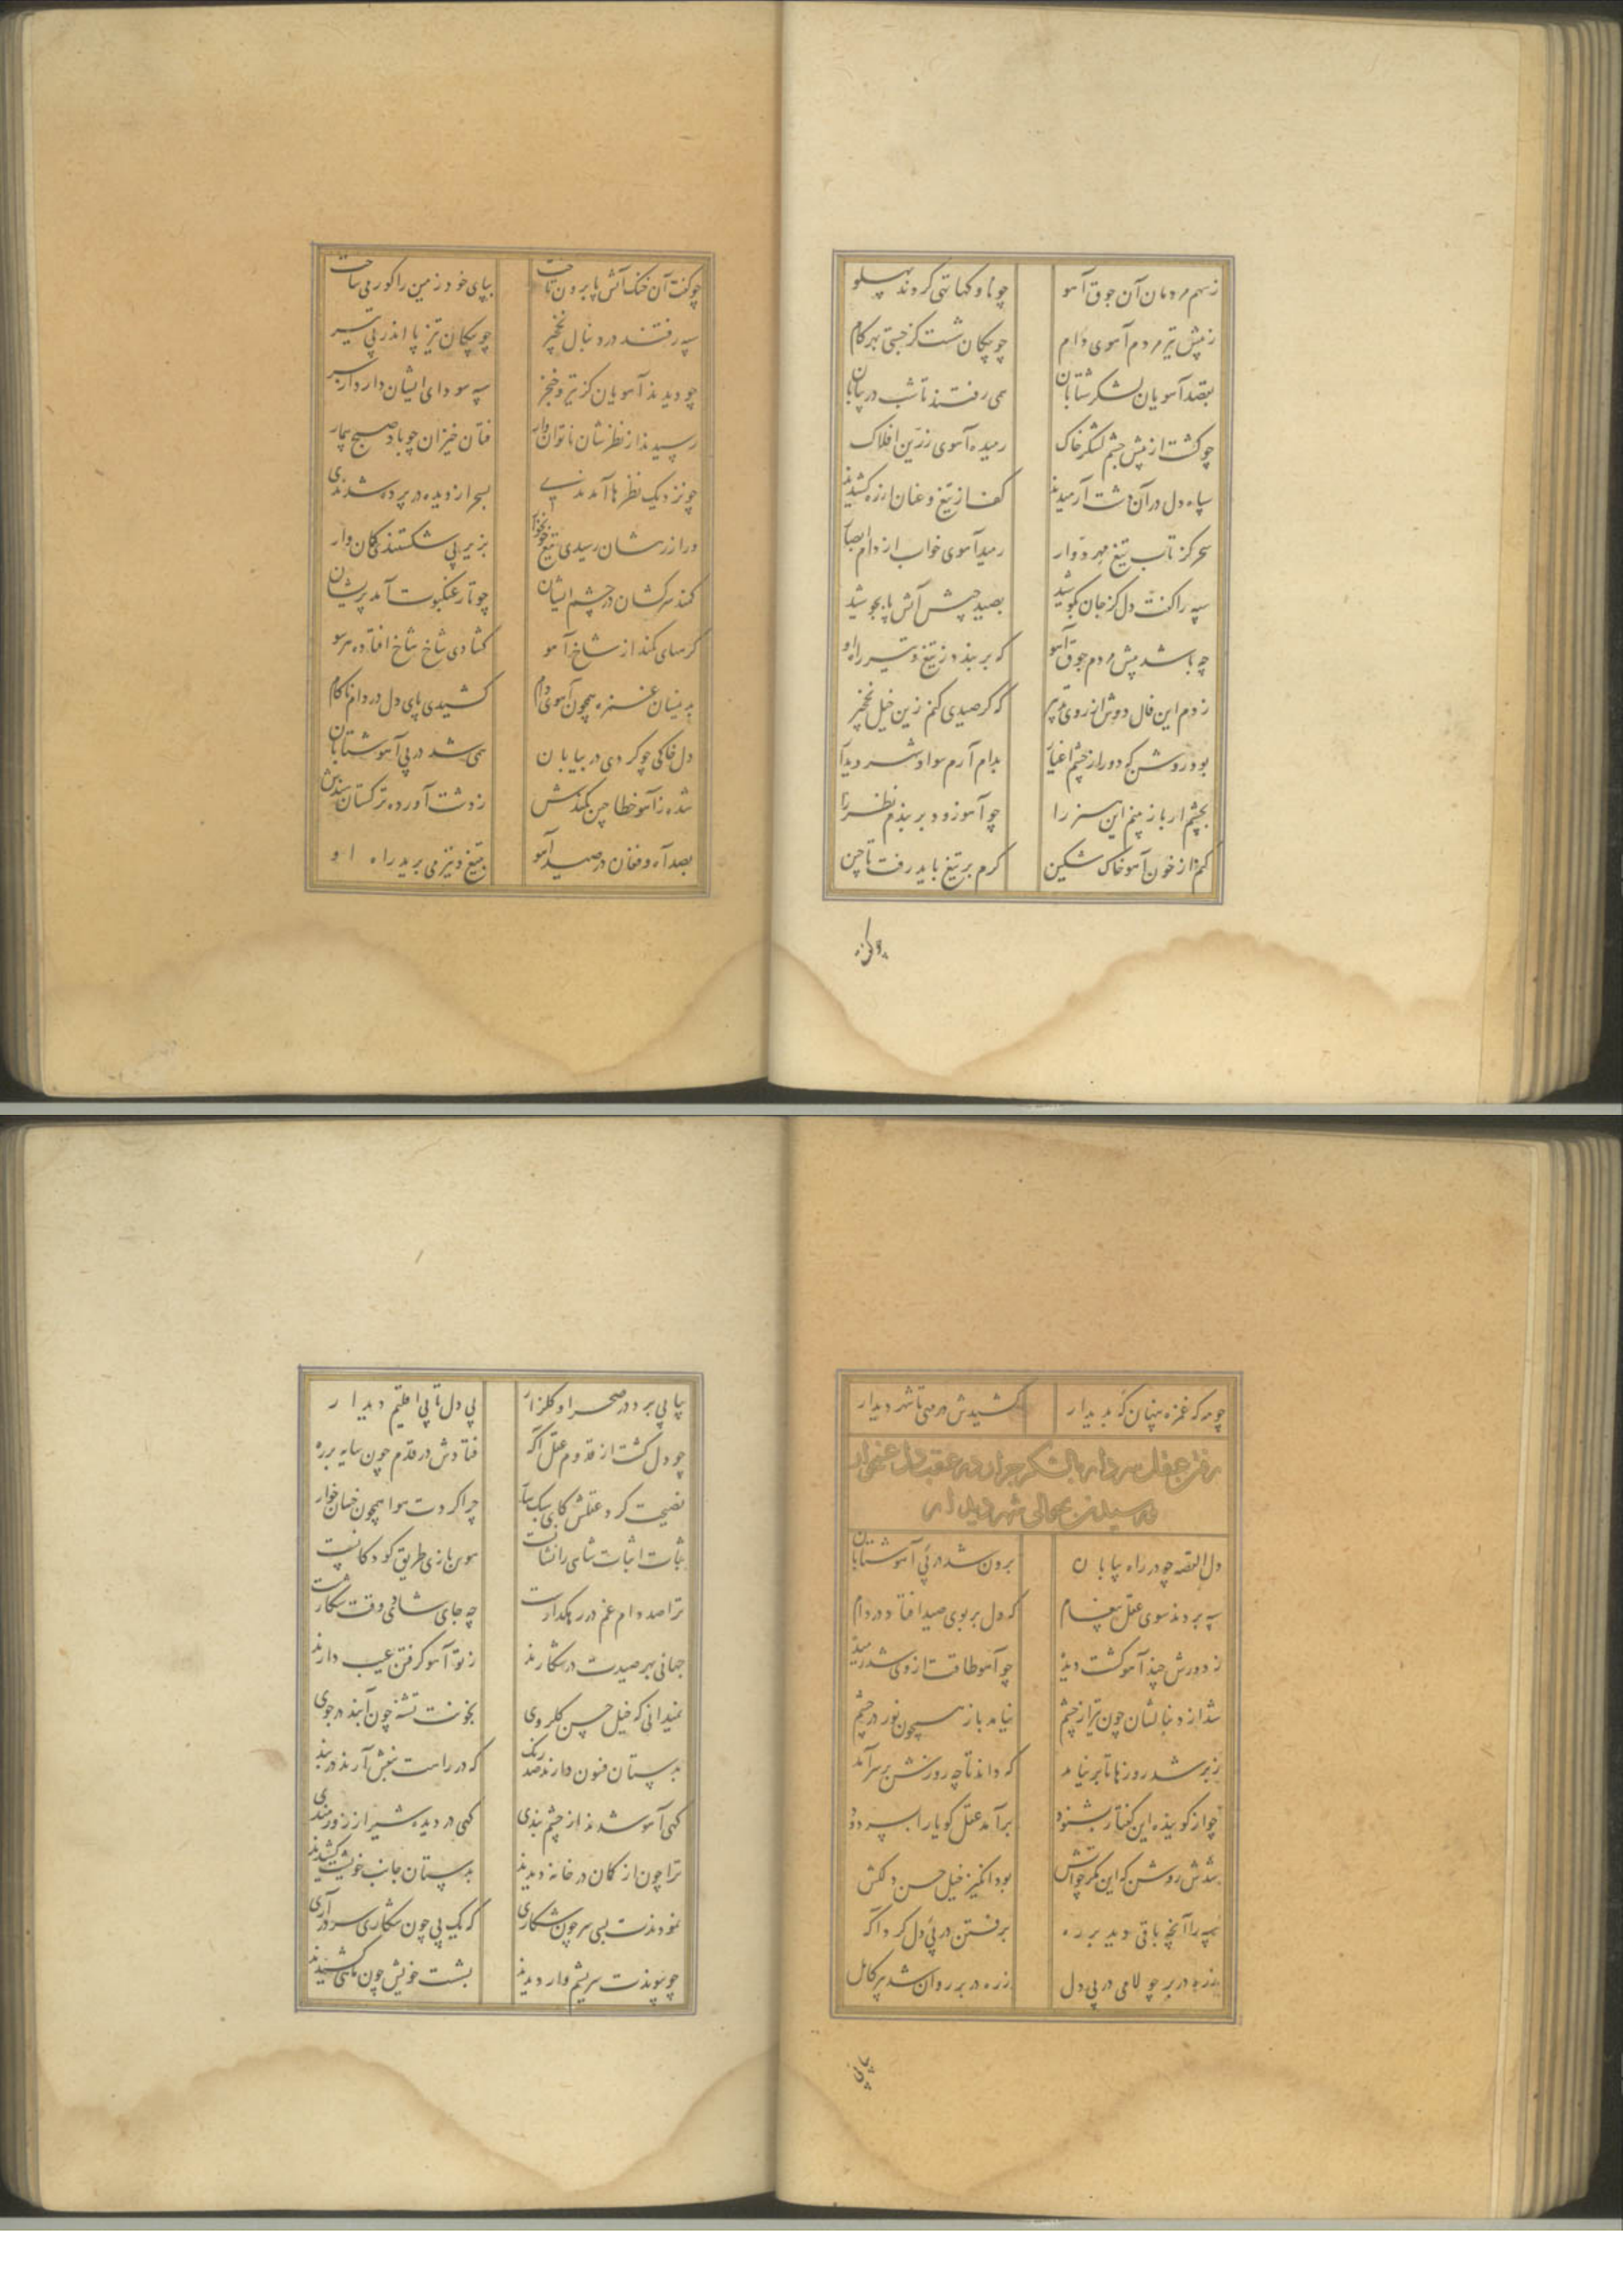 ز سهم مردمان آن جوق آهو چو ناوکها تهی کردند پهلو
ز پیش تیر مردم آهوی دام چو پیکان شست کز جستی بهر کام
بقصد آهویان لشکر شتابان همی رفتند تا شب در بیابان
چو گشت از پیش چشم لشکر خاک رمیده آهوی زرین افلاک
سپاه دل در آن دشت آرمیدند کف از تیغ و عنان از ره کشیدند
سحر کز تاب تیغ مهر دوار رمید آهوی خواب از دام ابصار
سپه را گفت دل کز جان بکوشید بصید جیش آتش پا بجوشید
چه باشد پیش مردم جوق آهو که بربندد ز تیغ و تیر راه او
زدم این فال دوش از روی تدبیر که گر صیدی کنم زین خیل نخجیر
بود روشن که دور از چشم اغیار بدام آرم سواد شهر دیدار
بچشم ار باز بینم این سفر را چو آهو زود بربندم نظر را
کنم از خون آهو خاک مشکین گرم بر تیغ باید رفت تا چین
چو گفت آن خنگ آتش پا برون تاخت بپای خود زمین را گور می ساخت
سپه رفتند در دنبال نخجیر چو پیکان تیز پا اندر پی تیر
چو دیدند آهویان کز تیر و خنجر سپه سودای ایشان دارد از سر
رسیدند از نظرشان ناتوان وار فتان خیزان چو باد صبح بیمار
چو نزدیک نظرها آمدندی بسحر از دیده در پرده شدندی
ور از رهشان رسیدی تیغ خونخوار بزیر پی شکستندی کمان وار
کمند سرکشان در چشم ایشان چو تار عنکبوت آمد پریشان
گرههای کمند از شاخ آهو گشادی شاخ شاخ افتاده هر سو
بدینسان غمزه همچون آهوی دام کشیدی پای دل در دام ناکام
دل خاکی چو گردی در بیابان همی شد در پی آهو شتابان
شده ز آهو خطا چین کمندش ز دشت آورده ترکستان ببندش
بصد آه و فغان در صید آهو بتیغ و تیر می برید راه او
چو مه که غمزه پنهان گه پدیدار کشیدش در پی تا شهر دیدار
رفتن عقل سردار با لشکر جرار در عقب دل غمخوار
و رسیدن بحوالی شهر دیدار
دل القصه چو در راه بیابان برون شد در پی آهو شتابان
سپه بردند سوی عقل پیغام که دل بر بوی صید افتاد در دام
ز دورش چند آهو گشت دیده چو آهو طاقت از وی شد رمیده
شد از دنبالشان چون تیر از چشم نیامد باز همچون نور در چشم
ز بر شد روزها تا بر نیامد که داند تا چه روزش بر سر آمد
چو از گوینده این گفتار بشنود برآمد عقل گویا را ز سر دود
شدش روشن که این مکر چو آتش بود انگیز خیل حسن دلکش
سپه را آنچه باقی دید بر ره برفتن در پی دل کرد آگه
زره در بر چو لامی در پی دل زره در بر روان شد پیر کامل
پیاپی برد در صحرا و گلزار پی دل تا پی اقلیم دیدار
چو دل گشت از قدوم عقل آگه فتادش در قدم چون سایه بر ره
نصیحت کرد عقلش کای سبکسار چرا کردت هوا همچون خسان خوار
ثبات اثبات شاهی را نشانست هوس بازی طریق کودکانست
ترا صد دام غم در رهگذارست چه جای شادی و وقت شکارست
جهانی بهر صیدت در شکارند ز تو آهو گرفتن عیب دارند
نمیدانی که خیل حسن گلروی بخونت تشنه چون آبند در جوی
بدستان فنون دارند صد رنگ که در راهت بنقش آرند در بند
گهی آهو شدند از چشم بندی گهی در دیده شیر از زورمندی
ترا چون از کمان در خانه دیدند بدستان جانب خویشت کشیدند
نمودندت پی سر چون شکاری که یک پی چون شکاری سر درآری
چو پیوندت سریشم وار دیدند بشست خویش چون ماهی کشیدند